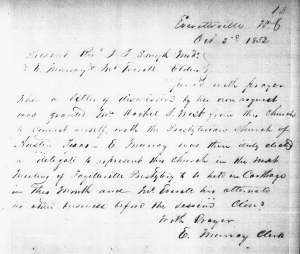 Everettsville N C
Oct 2nd 1852
Present Rev
E Murray & Mc Ferrell Elders
with prayer
have a letter of dismission by her own request
was granted Mrs Rachel S West from this Church
to connect with the Presbyterian Church of
Austin Texas E Murray was then duly elected
a delegate to represent this Church in the next
Meeting of Fayetteville Presbytery to be held in Carthage
in this Month and Mc Ferrell his alternate
no other business before the session Closed
With Prayer
E. Murray Clerk